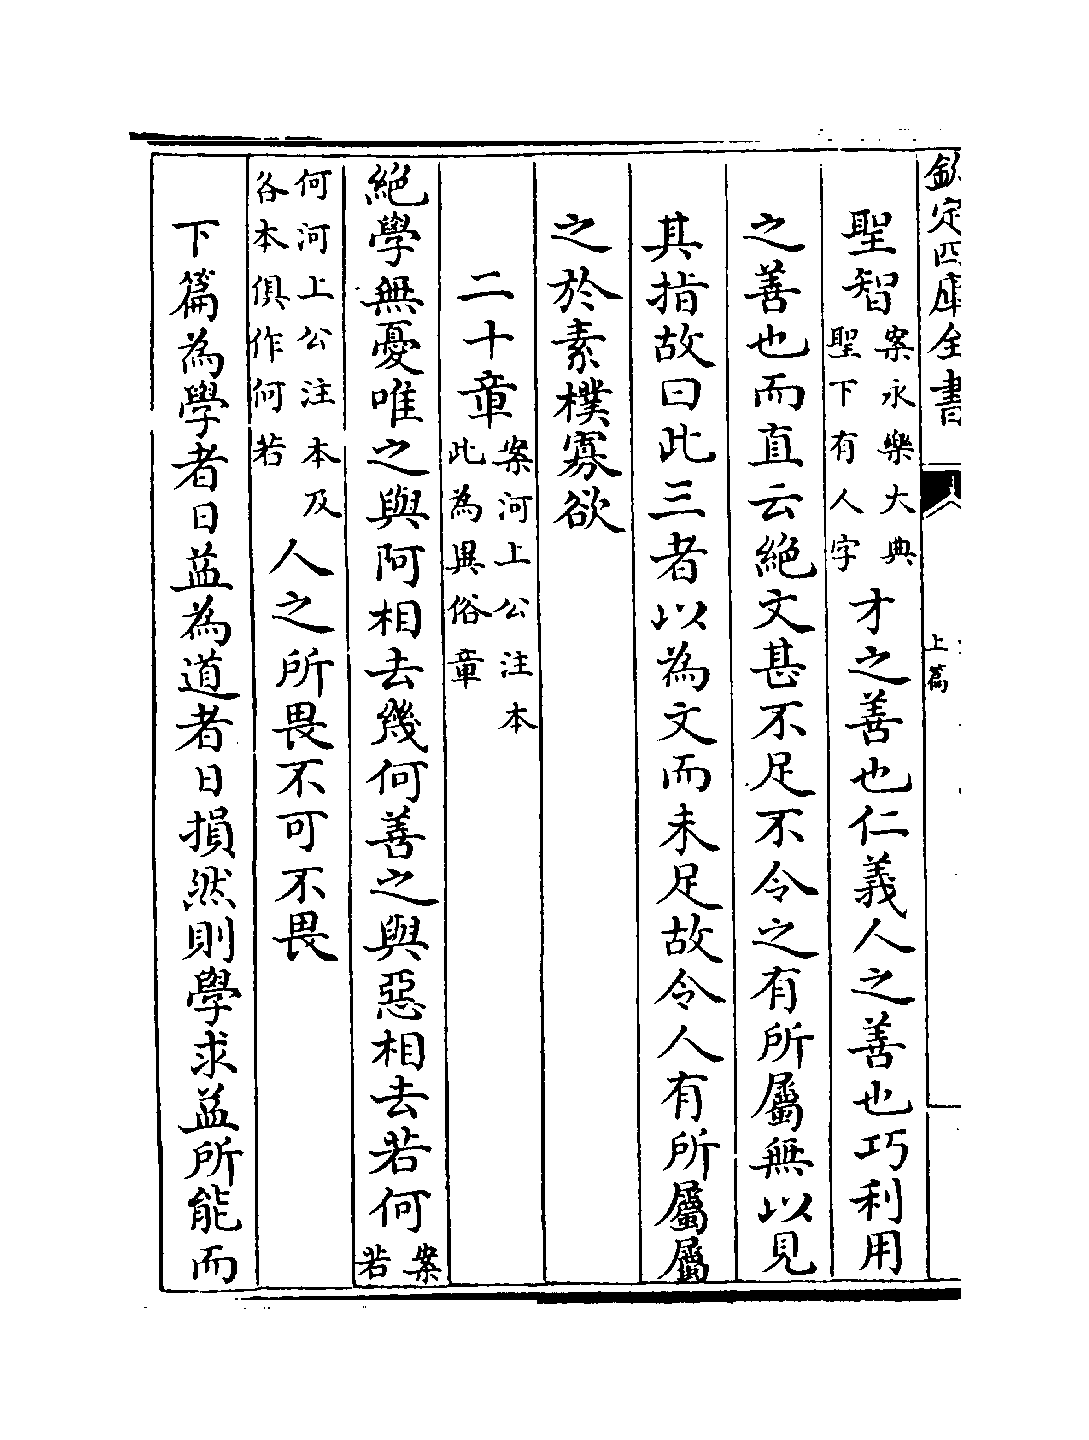 欽定四庫全書
上篇
聖智案永樂大典聖下有人字才之善也仁義人之善也巧利用
之善也而直云絕文甚不足不令之有所屬無以見
其指故曰此三者以為文而未足故令人有所屬屬
之於素樸寡欲
二十章案河上公注本此為異俗章
絕學無憂唯之與阿相去幾何善之與惡相去若何案若
何河上公注本及各本俱作何若人之所畏不可不畏
下篇為學者日益為道者日損然則學求益所能而